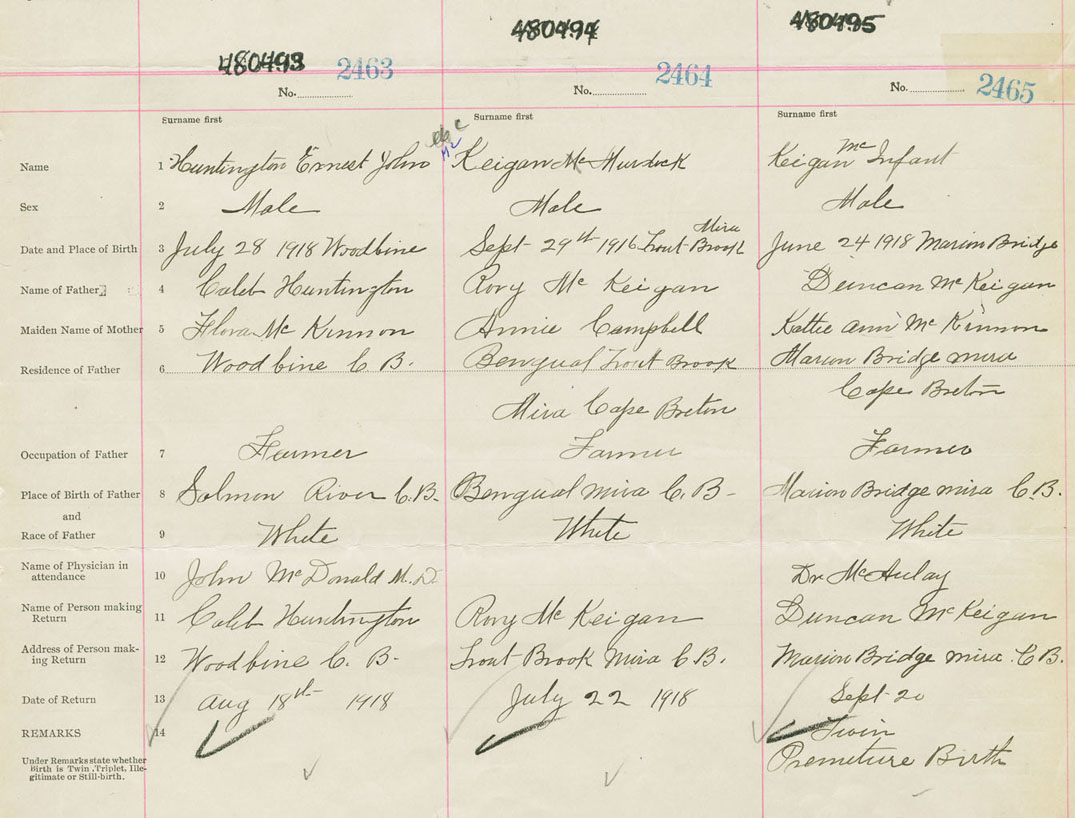 480493 480494 480495
2463 2464 2465
No. No. No.
Surname first Surname first Surname first
Name 1 Huntington Ernest John Keigan Mc Murdock Keigan Mc Infant
Sex 2 Male Male Male
Mira
Date and Place of Birth 3 July 28 1918 Woodbine Sept 29th 1916 Trout Brook June 24 1918 Marion Bridge
Name of Father 4 Caleb Huntington Rory Mc Keigan Duncan McKeigan
Maiden Name of Mother 5 Flora Mc Kinnon Annie Campbell Kattie Ann Mc Kinnon
Residence of Father 6 Woodbine C. B. Bengual Trout Brook Marion Bridge Mira
Mira Cape Breton Cape Breton
Occupation of Father 7 Farmer Farmer Farmer
Place of Birth of Father 8 Salmon River C.B. Bengual Mira C. B- Marion Bridge Mira C.B.
and
Race of Father 9 White White White
Name of Physician in
attendance 10 John McDonald M.D. Dr McAulay
Name of Person making
Return 11 Caleb Huntington Rory McKeigan Duncan McKeigan
Address of Person mak-
ing Return 12 Woodbine C. B- Trout Brook Mira C B. Marion Bridge Mira C.B.
Date of Return 13 Aug 18th 1918 July 22 1918 Sept 20
REMARKS 14 Twin
Premeture Birth
Under Remarks state whether
Birth is Twin, Triplet, Ille-
gitimate or Still-birth.